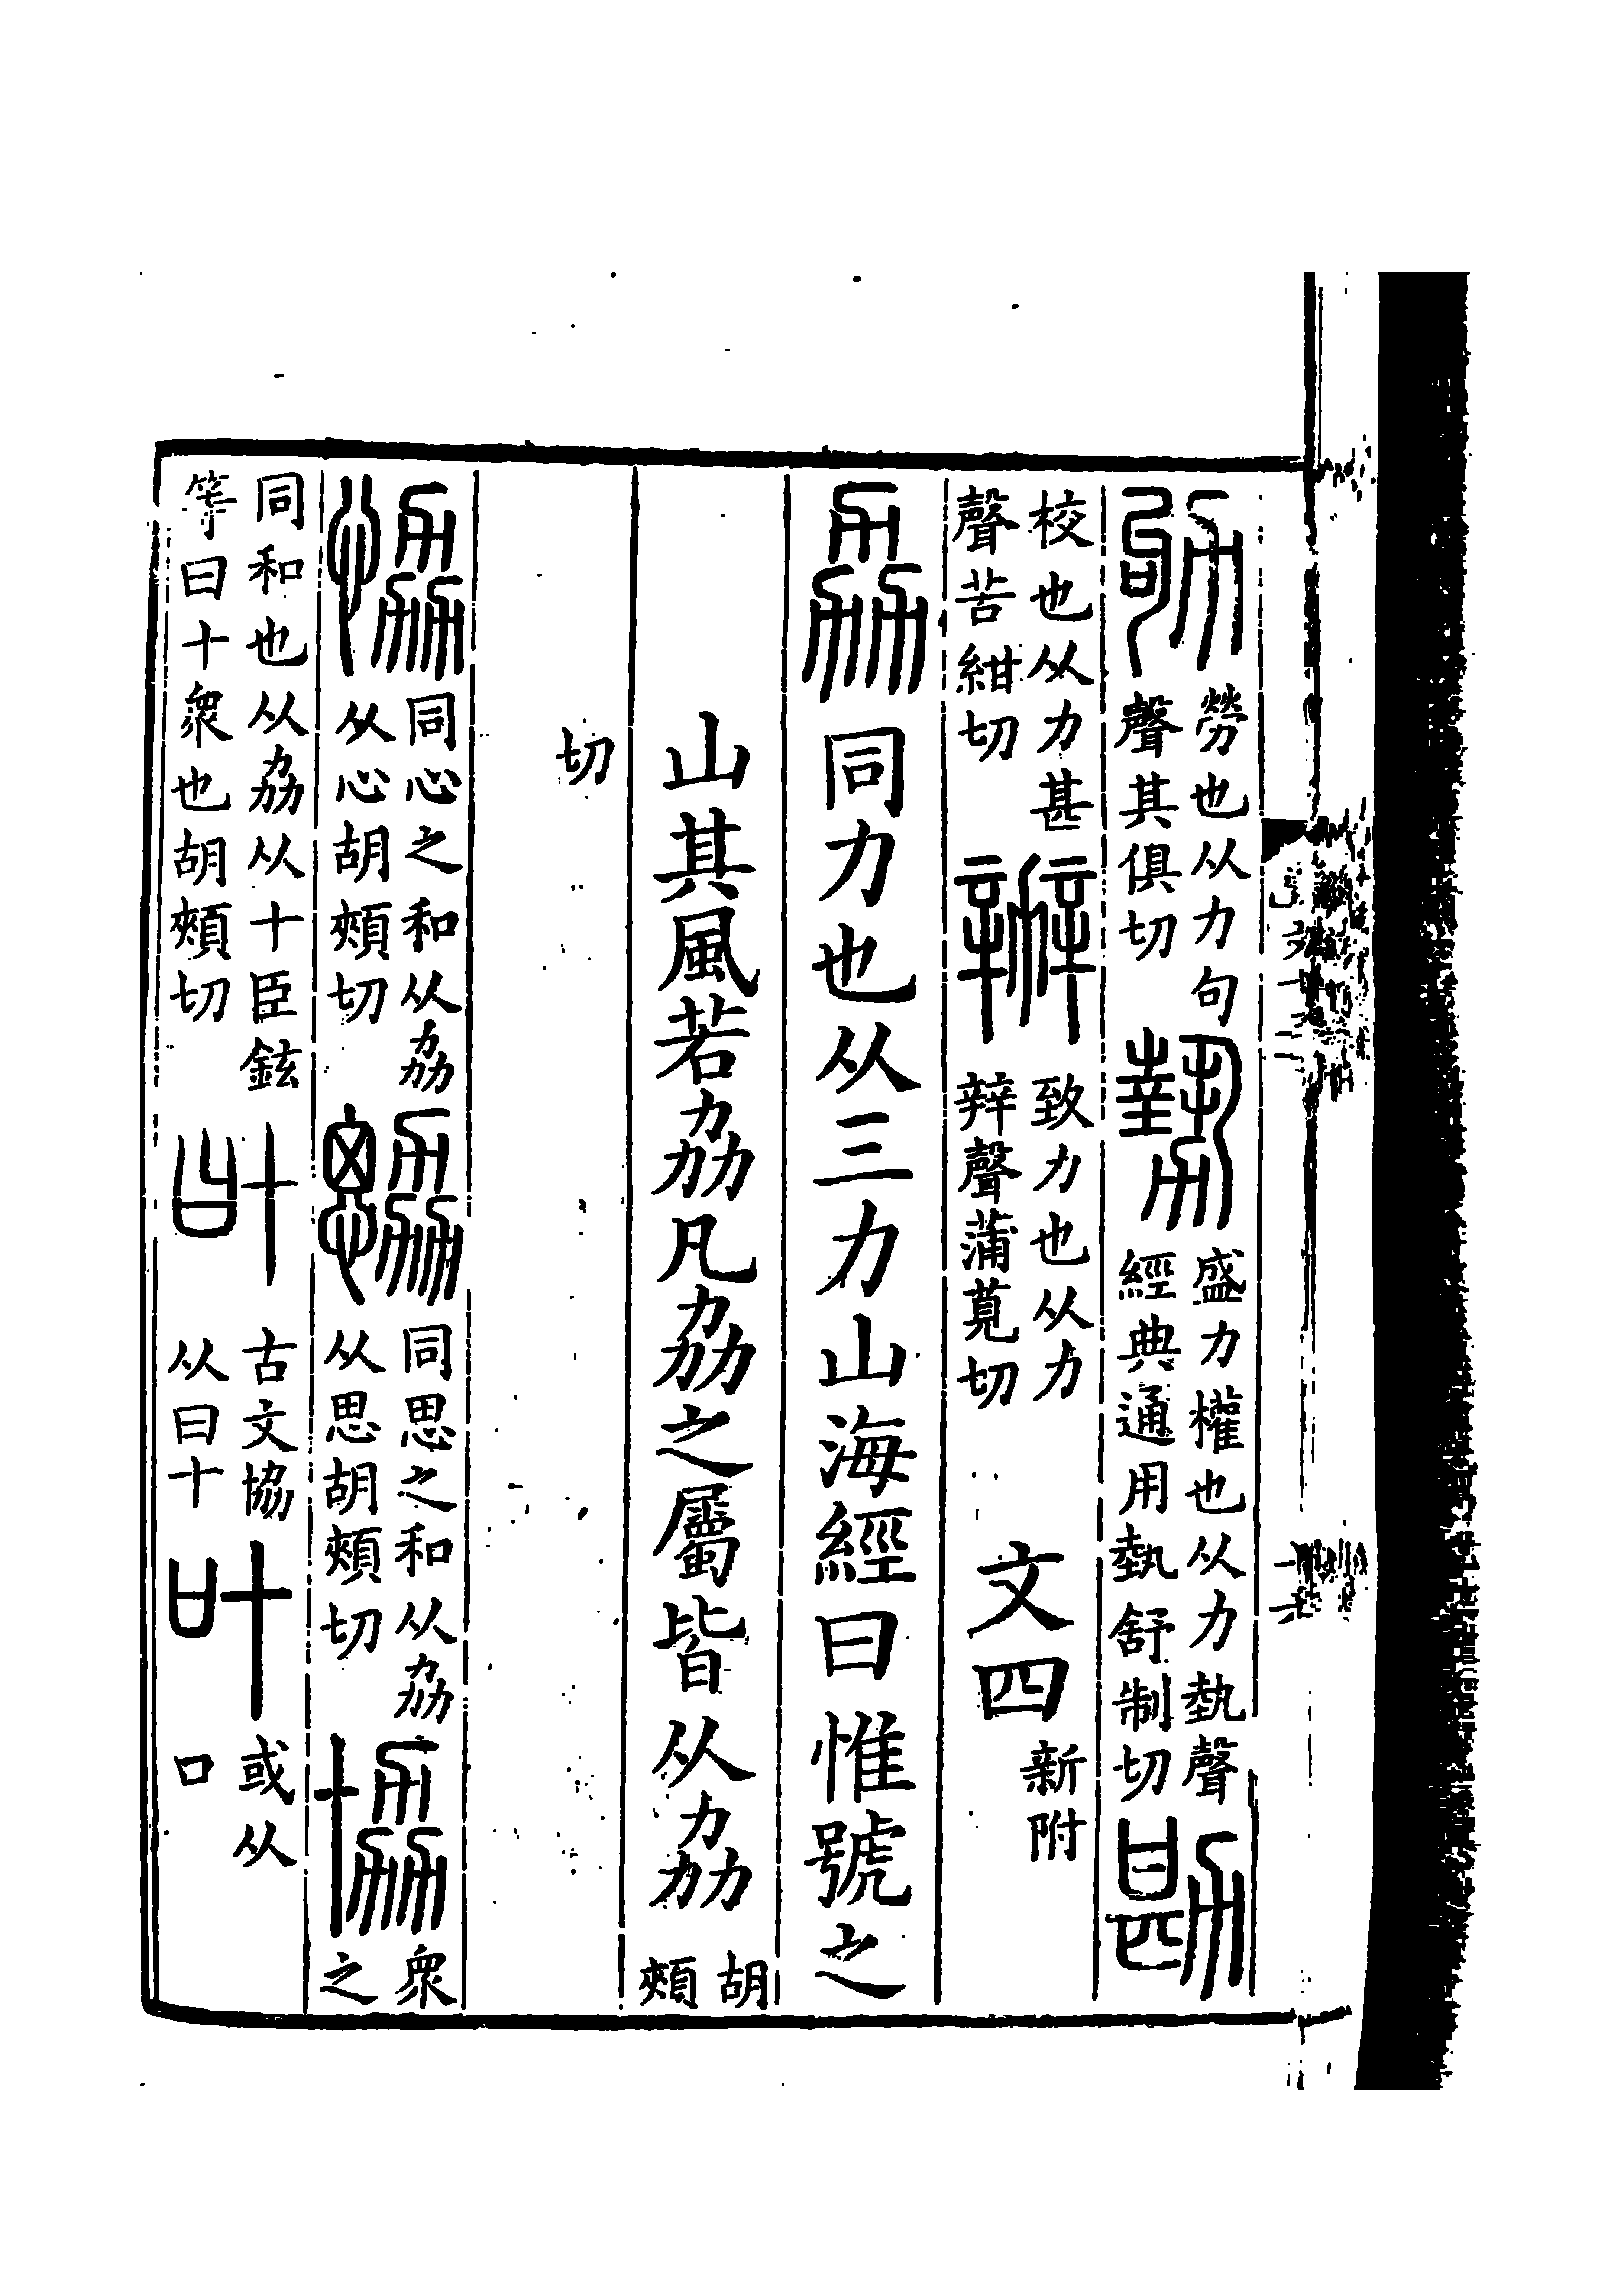 劬勞也从力句聲其俱切勢盛力權也从力埶聲經典通用埶舒制切勘
校也从力甚聲苦紺切辦致力也从力辡聲蒲莧切文四新附
劦同力也从三力山海經曰惟號之
山其風若劦凡劦之屬皆从劦胡頰
切
恊同心之和从劦从心胡頰切勰同思之和从劦从思胡頰切協衆之
同和也从劦从十臣鉉等曰十衆也胡頰切旪古文協从曰十叶或从口